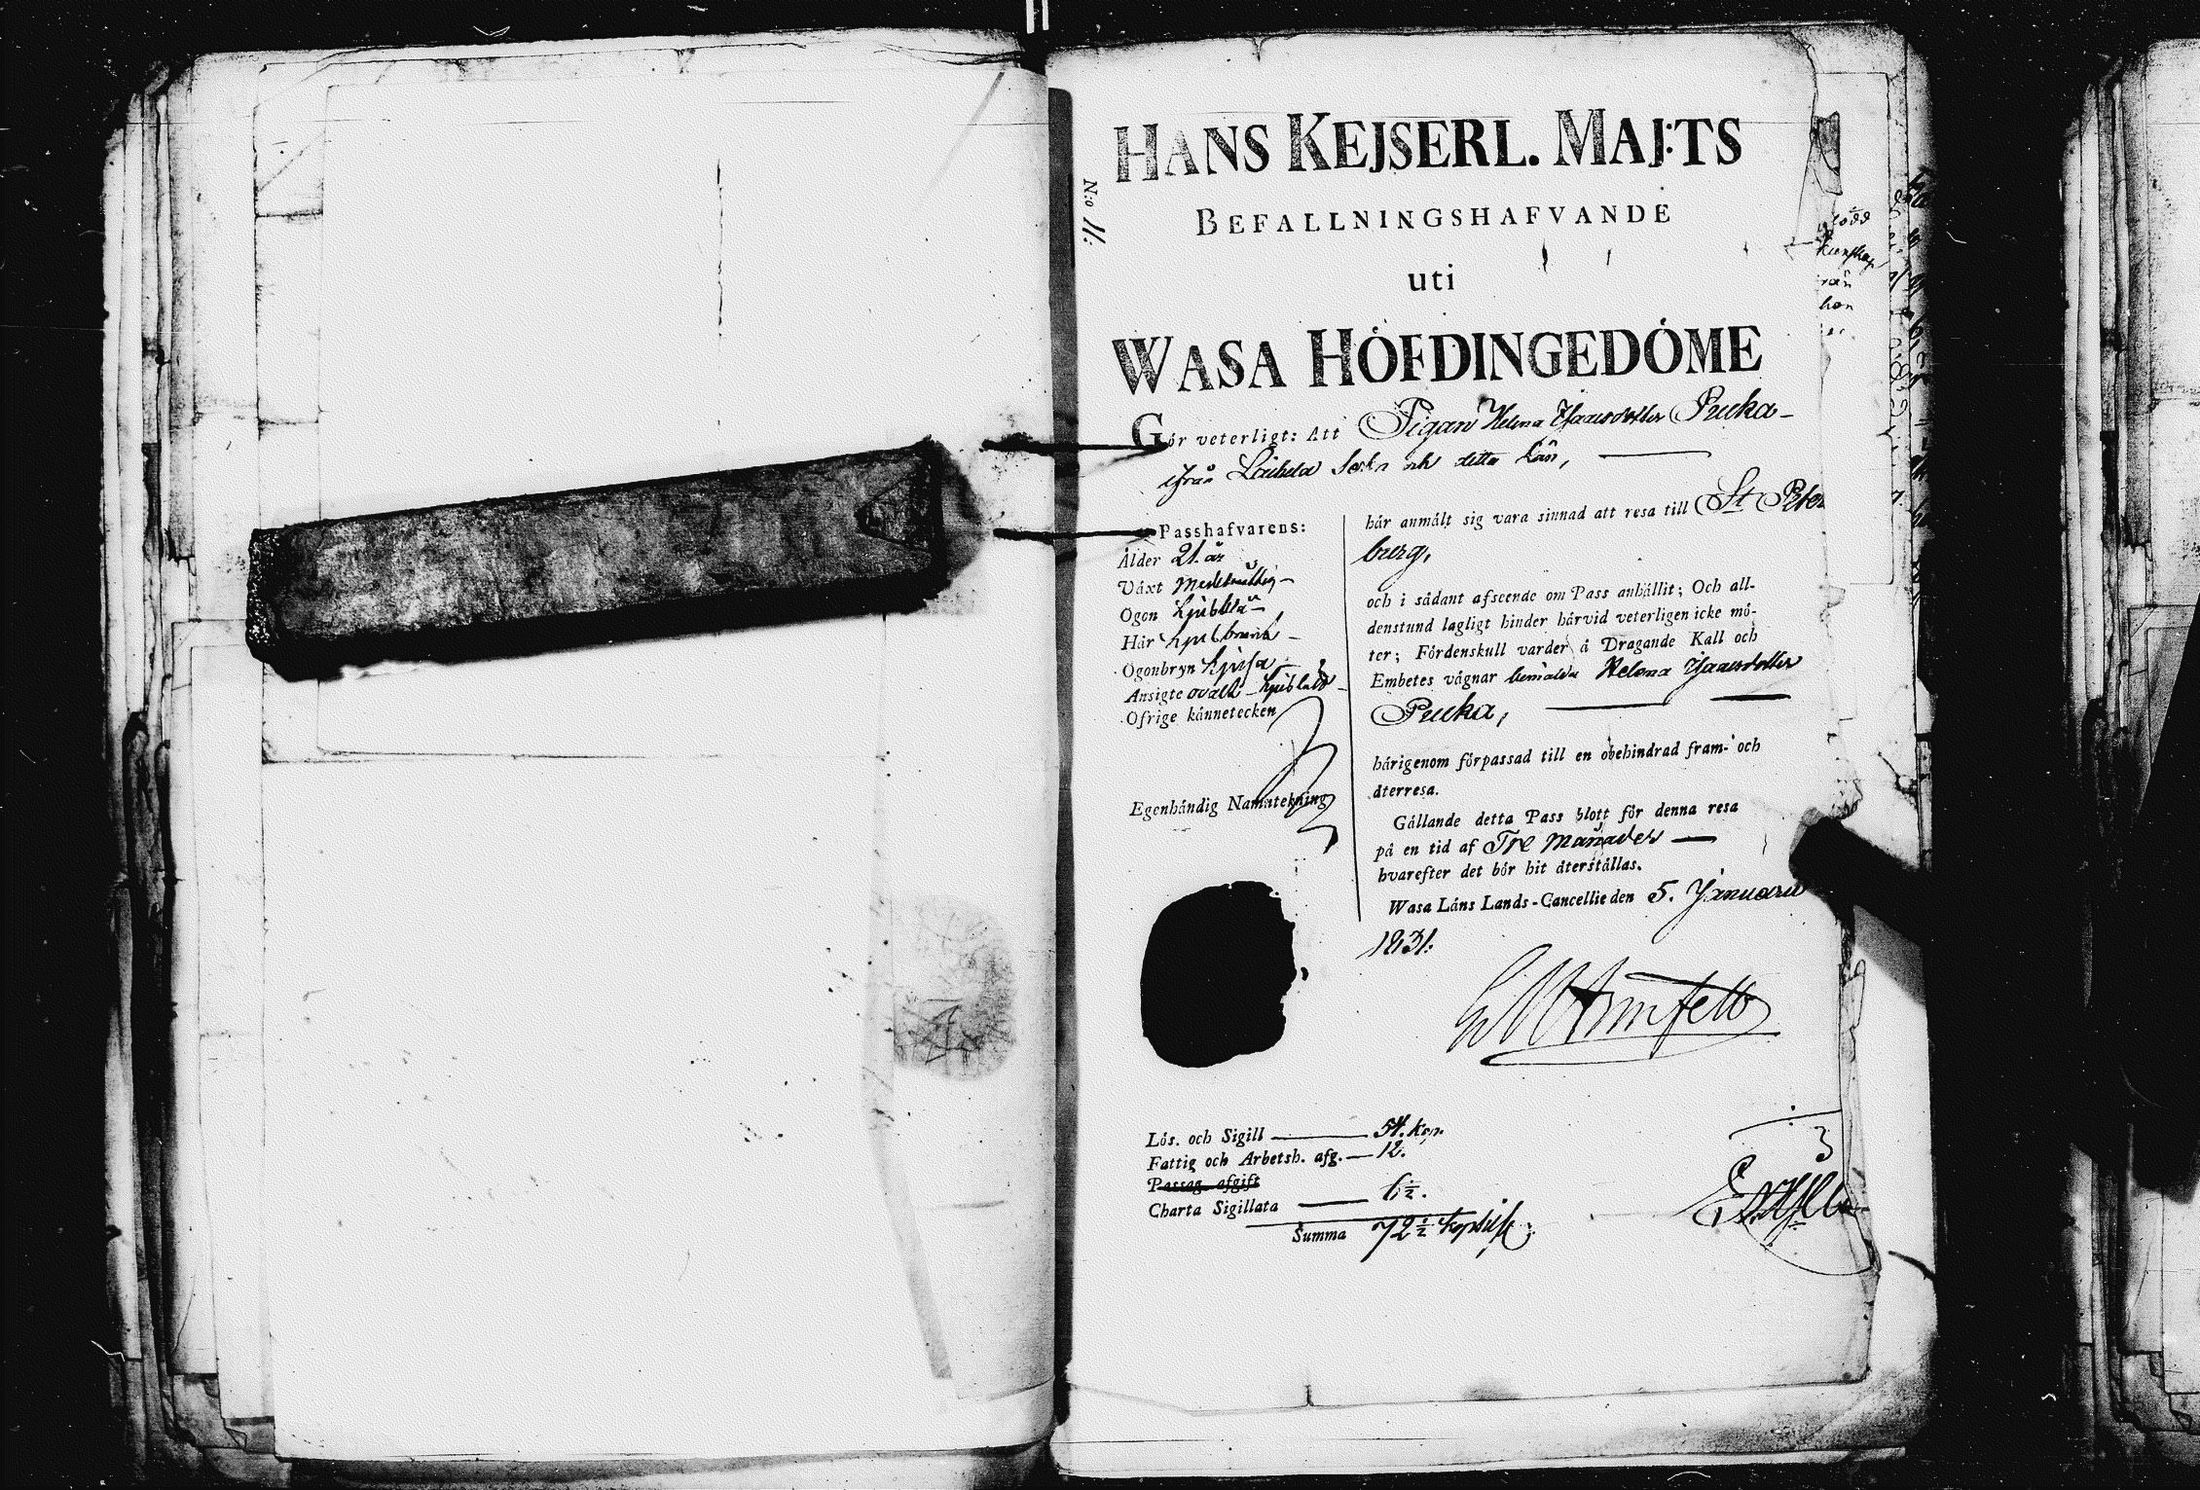 N:o 11.
HANS KEJSERL. MAJ:TS
BEFALLNINGSHAFVANDE
uti
WASA HÖFDINGEDÖME
Gör veterligt: Att Pigan Helena Isaacsdotter Pucka
ifrån Socken och detta Län,
Passhafvarens:
Ålder 21. år
Växt Medelmåttig
Ögon Ljusblå
Hår Ljusbrunt
Ögonbryn Ljusa
Ansigte ovalt
Öfrige kännetecken
Egenhändig Namntekning
här anmält sig vara sinnad att resa till St Peters
burg,
och i sådant afseende om Pass anhållit; Och all-
denstund lagligt hinder härvid veterligen icke mö-
ter; Fördenskull varder å Dragande Kall och
Embetes vägnar bemälda Helena Isaacsdotter
Pucka,
härigenom förpassad till en obehindrad fram- och
återresa.
Gällande detta Pass blott för denna resa
på en tid af Tre månader
hvarefter det bör hit återställas.
Wasa Läns Lands-Cancellie den 5. Januarii
1831.
Lös. och Sigill 54. kop.
Fattig och Arbetsh. afg. 12.
Passag. afgift
Charta Sigillata 6½.
Summa 72½ kop